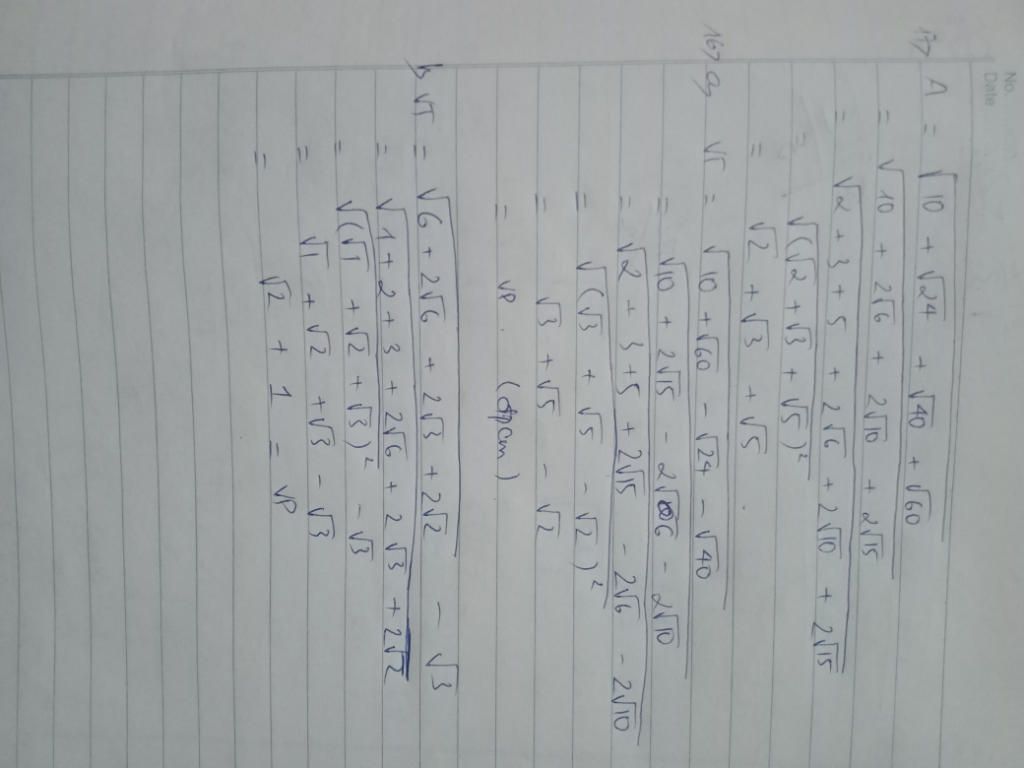 No.
Date
17> A = √(10 + √24 + √40 + √60)
= √(10 + 2√6 + 2√10 + 2√15)
= √(2 + 3 + 5 + 2√6 + 2√10 + 2√15)
= √((√2 + √3 + √5)²)
= √2 + √3 + √5
16> a, VT = √(10 + √60 - √24 - √40)
= √(10 + 2√15 - 2√6 - 2√10)
= √(2 + 3 + 5 + 2√15 - 2√6 - 2√10)
= √((√3 + √5 - √2)²)
= √3 + √5 - √2
= VP. (đpcm)
b, VT = √(6 + 2√6 + 2√3 + 2√2) - √3
= √(1 + 2 + 3 + 2√6 + 2√3 + 2√2)
= √((√1 + √2 + √3)²) - √3
= √1 + √2 + √3 - √3
= √2 + 1 = VP